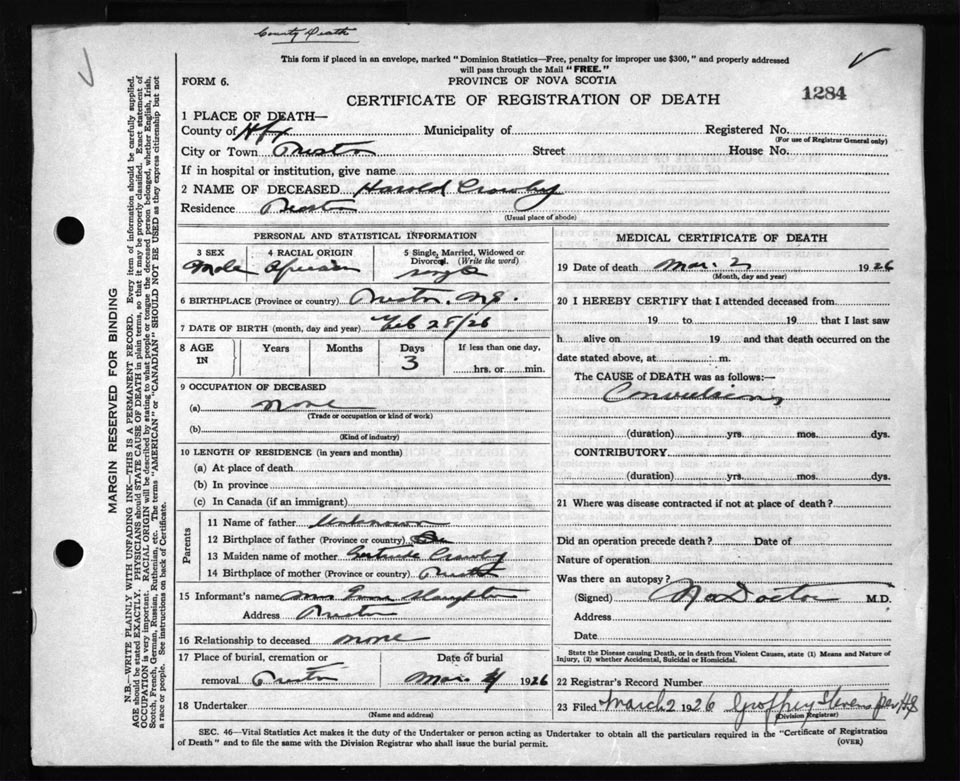 County Death
This form if placed in an envelope, marked "Dominion Statistics—Free, penalty for improper use $300," and properly addressed
will pass through the Mail "FREE."
FORM 6.
PROVINCE OF NOVA SCOTIA
CERTIFICATE OF REGISTRATION OF DEATH
1284
1 PLACE OF DEATH—
County of Hfx Municipality of Registered No.
(For use of Registrar General only)
City or Town Preston Street House No.
If in hospital or institution, give name
2 NAME OF DECEASED Harold Crowley
Residence Preston
(Usual place of abode)
PERSONAL AND STATISTICAL INFORMATION
3 SEX 4 RACIAL ORIGIN 5 Single, Married, Widowed or
Divorced. (Write the word)
Male African single
6 BIRTHPLACE (Province or country) Preston, N.S.
7 DATE OF BIRTH (month, day and year) Feb 28/26
8 AGE IN Years Months Days If less than one day,
3 hrs. or min.
9 OCCUPATION OF DECEASED
(a) none
(Trade or occupation or kind of work)
(b)
(Kind of industry)
10 LENGTH OF RESIDENCE (in years and months)
(a) At place of death
(b) In province
(c) In Canada (if an immigrant)
Parents
11 Name of father Unknown
12 Birthplace of father (Province or country)
13 Maiden name of mother Gertrude Crowley
14 Birthplace of mother (Province or country) Preston
15 Informant's name Mrs Slaughter
Address Preston
16 Relationship to deceased none
17 Place of burial, cremation or Date of burial
removal Preston Mar. 4 1926
18 Undertaker
(Name and address)
MEDICAL CERTIFICATE OF DEATH
19 Date of death Mar. 2 1926
(Month, day and year)
20 I HEREBY CERTIFY that I attended deceased from
19 to 19 that I last saw
h alive on 19 and that death occurred on the
date stated above, at m.
The CAUSE of DEATH was as follows:—
Convulsions
(duration) yrs. mos. dys.
CONTRIBUTORY
(duration) yrs. mos. dys.
21 Where was disease contracted if not at place of death?
Did an operation precede death? Date of
Nature of operation
Was there an autopsy?
(Signed) No Doctor M.D.
Address
Date
State the Disease causing Death, or in death from Violent Causes, state (1) Means and Nature of
Injury, (2) whether Accidental, Suicidal or Homicidal.
22 Registrar's Record Number
23 Filed March 2 1926 Geoffrey Stevens per HS
(Division Registrar)
SEC. 46—Vital Statistics Act makes it the duty of the Undertaker or person acting as Undertaker to obtain all the particulars required in the "Certificate of Registration
of Death" and to file the same with the Division Registrar who shall issue the burial permit.
(OVER)
MARGIN RESERVED FOR BINDING
N.B.—WRITE PLAINLY WITH UNFADING INK—THIS IS A PERMANENT RECORD. Every item of information should be carefully supplied.
AGE should be stated EXACTLY. PHYSICIANS should STATE CAUSE OF DEATH in plain terms, so that it may be properly classified. Exact statement of
OCCUPATION is very important. RACIAL ORIGIN will be described by stating to what people or tongue the deceased person belonged, whether English, Irish,
Scotch, French, German, Russian, Ruthenian, etc. The terms "AMERICAN" or "CANADIAN" SHOULD NOT BE USED as they express citizenship but not
a race or people. See instructions on back of Certificate.